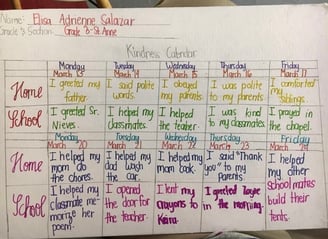 Name: Elisa Adrienne Salazar
Grade & Section: Grade 3-St. Anne
Kindness Calendar
Monday Tuesday Wednesday Thursday Friday
March 13 March 14 March 15 March 16 March 17
Home
I greeted my father.
I said polite words.
I obeyed my parents.
I was polite to my parents.
I comforted my siblings.
School
I greeted Sr. Nieves.
I helped my classmates.
I helped the teacher.
I was kind to my classmates.
I prayed in the chapel.
Monday Tuesday Wednesday Thursday Friday
March 20 March March March 23 March
Home
I helped my mom do the chores.
I helped my dad wash the car.
I helped my mom cook.
I said "Thank you" to my parents
I helped my other school mates build their tents.
School
I helped my classmate memorize her poem.
I opened the door for the teacher.
I lent my crayons to
I greeted in the morning.